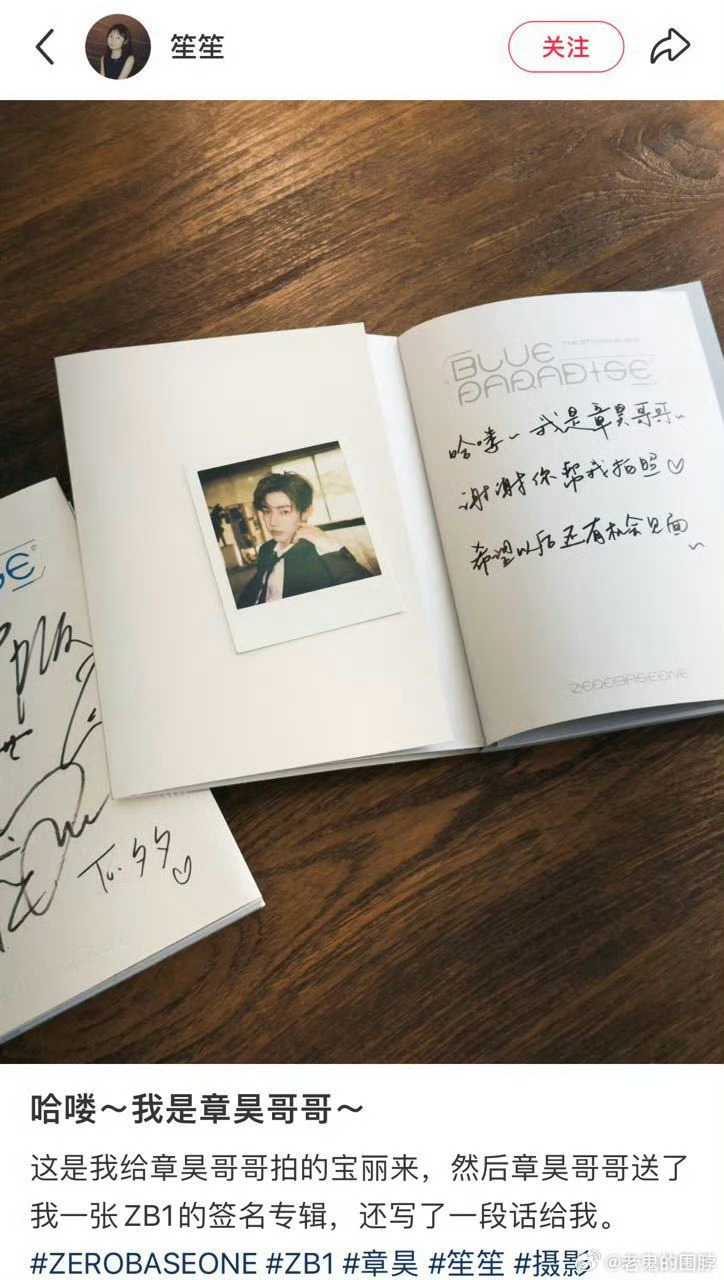 笙笙
关注
BLUE
PARADISE
哈喽~我是章昊哥哥~
谢谢你帮我拍照♡
希望以后还有机会见面~
ZEROBASEONE
SE
To.夕夕♡
哈喽～我是章昊哥哥～
这是我给章昊哥哥拍的宝丽来，然后章昊哥哥送了
我一张ZB1的签名专辑，还写了一段话给我。
#ZEROBASEONE #ZB1 #章昊 #笙笙 #摄影
@老鬼的围脖